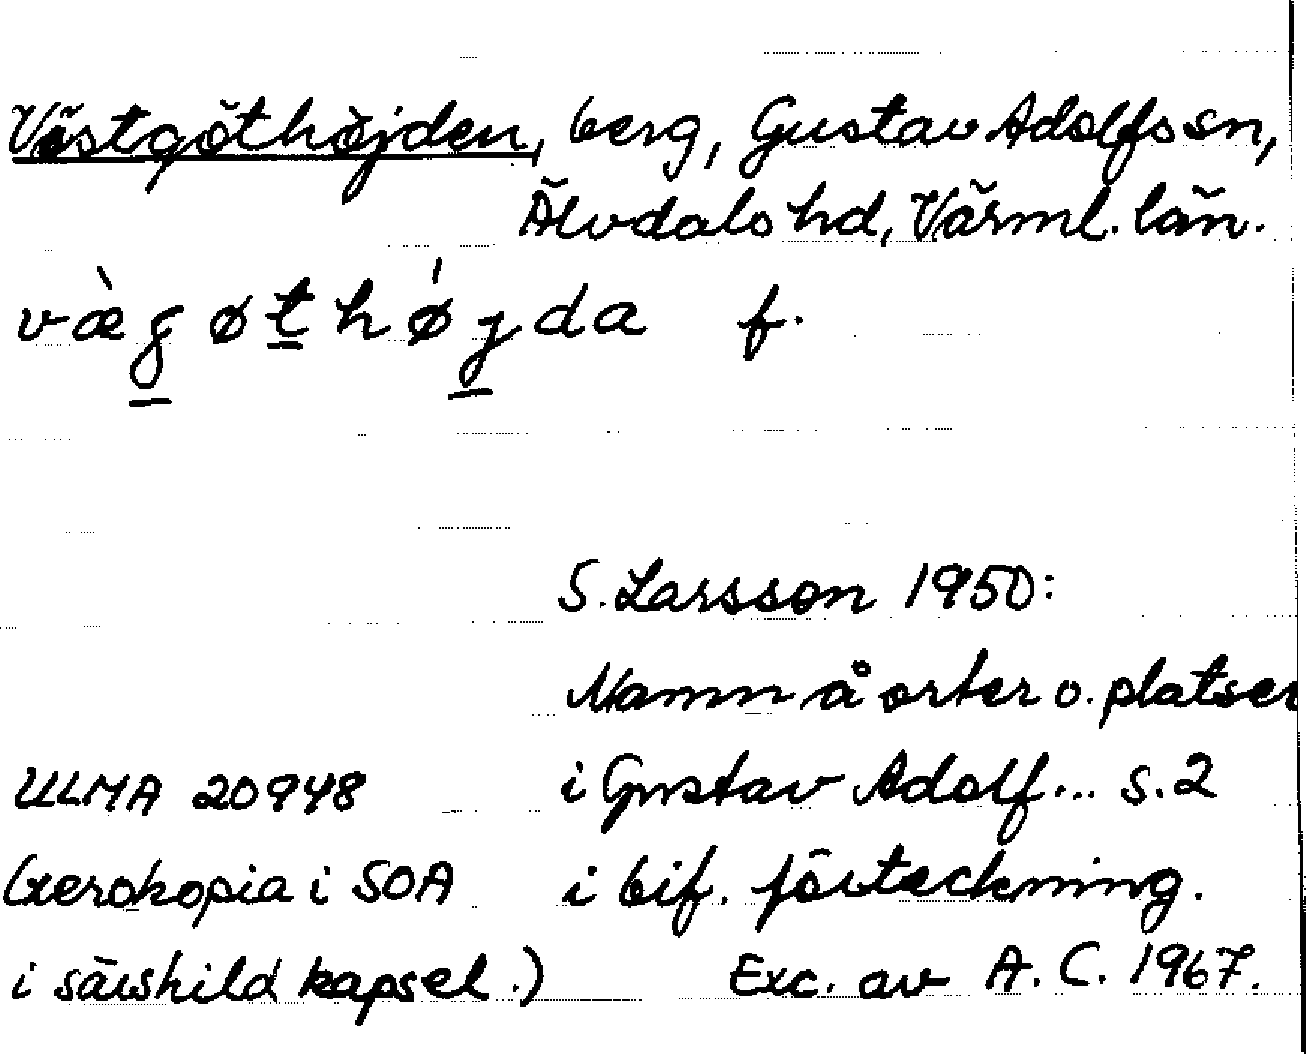 Västgöthöjden, berg, Gustav Adolfs sn,
Älvdals hd, Värml. län.
vàgøthǿjda f.
S. Larsson 1950:
Namn å orter o. platser
ULMA 20948 i Gustav Adolf... s. 2
(xerokopia i SOA i bif. förteckning.
i särskild kapsel.) Exc. av A. C. 1967.